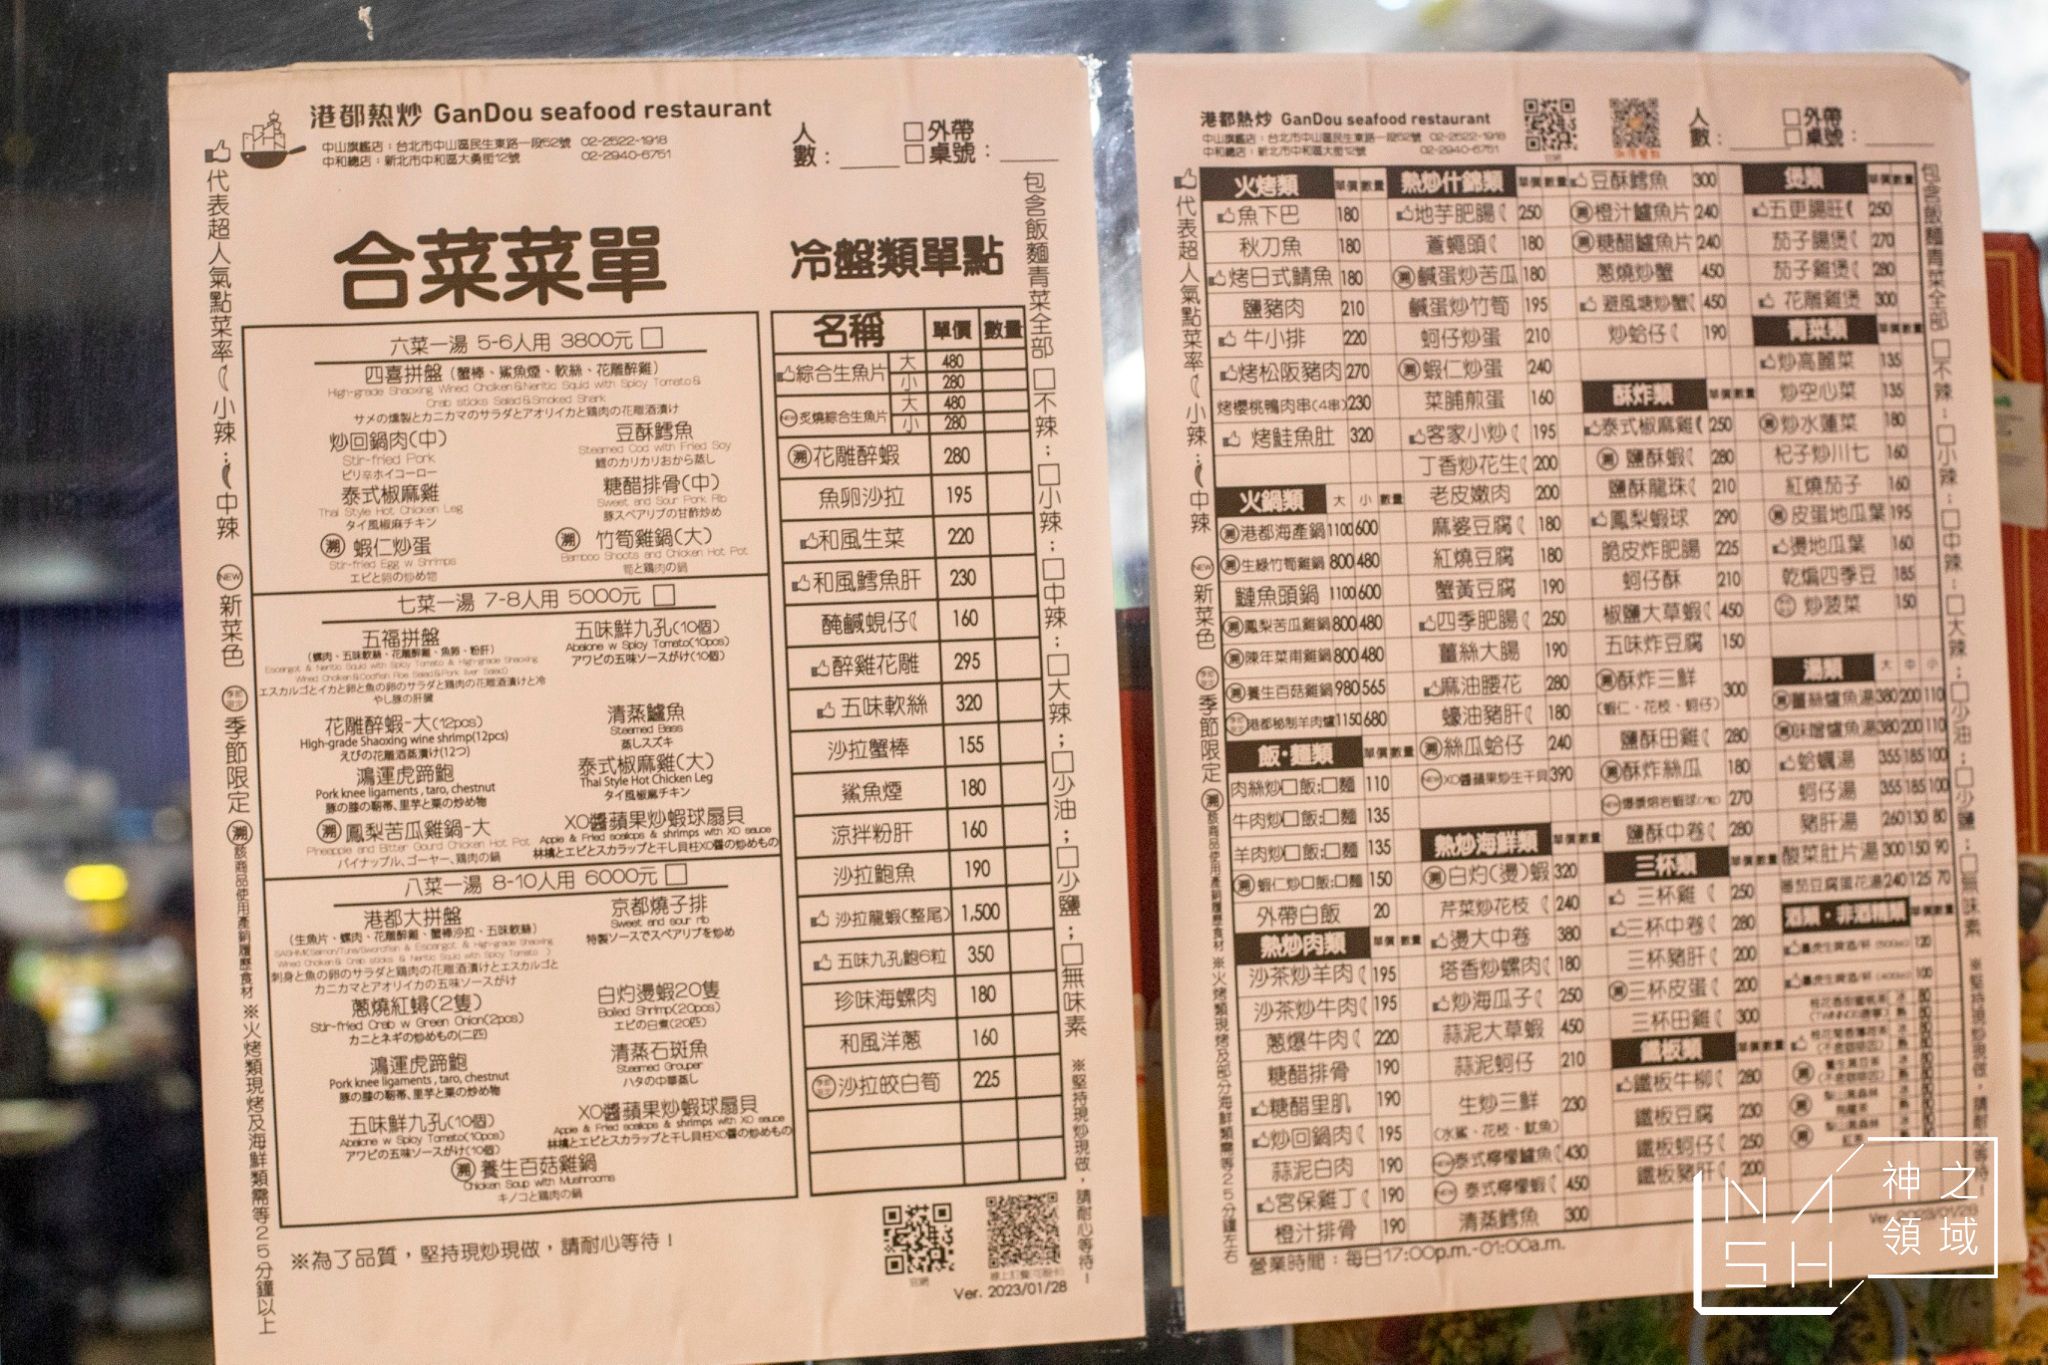 港都熱炒 GanDou seafood restaurant
中山旗艦店：台北市中山區民生東路一段52號 02-2522-1918
中和總店：新北市中和區大勇街12號 02-2940-6751
人數：
□外帶
□桌號：
代表超人氣點菜率 小辣；中辣 NEW 新菜色 季節限定 溯 該商品使用產銷履歷食材 ※火烤類現烤及海鮮類需等25分鐘以上
包含飯麵青菜全部 □不辣；□小辣；□中辣；□大辣；□少油；□少鹽；□無味素 ※堅持現炒現做，請耐心等待！
合菜菜單
六菜一湯 5-6人用 3800元 □
四喜拼盤（蟹棒、鯊魚煙、軟絲、花雕醉雞）
サメの燻製とカニカマのサラダとアオリイカと鶏肉の花雕酒漬け
炒回鍋肉(中)
Stir-fried Pork
ピリ辛ホイコーロー
豆酥鱈魚
Steamed Cod with Fried Soy
鱈のカリカリおから蒸し
泰式椒麻雞
Thai Style Hot Chicken Leg
タイ風椒麻チキン
糖醋排骨(中)
Sweet and Sour Pork Rib
豚スペアリブの甘酢炒め
溯 蝦仁炒蛋
Stir-fried Egg w Shrimps
エビと卵の炒め物
溯 竹筍雞鍋(大)
Bamboo Shoots and Chicken Hot Pot
筍と鶏肉の鍋
七菜一湯 7-8人用 5000元 □
五福拼盤
（螺肉、五味軟絲、花雕醉雞、魚卵、粉肝）
エスカルゴとイカと卵と魚の卵のサラダと鶏肉の花雕酒漬けと冷
やし豚の肝臓
五味鮮九孔(10個)
Abalone w Spicy Tomato(10pcs)
アワビの五味ソースがけ(10個)
花雕醉蝦-大(12pcs)
High-grade Shaoxing wine shrimp(12pcs)
えびの花雕酒蒸漬け(12つ)
清蒸鱸魚
Steamed Bass
蒸しスズキ
鴻運虎蹄鮑
Pork knee ligaments , taro, chestnut
豚の膝の靭帯、里芋と栗の炒め物
泰式椒麻雞(大)
Thai Style Hot Chicken Leg
タイ風椒麻チキン
溯 鳳梨苦瓜雞鍋-大
Pineapple and Bitter Gourd Chicken Hot Pot
パイナップル、ゴーヤー、鶏肉の鍋
XO醬蘋果炒蝦球扇貝
Apple & Fried scallops & shrimps with XO sauce
林檎とエビとスカラップと干し貝柱XO醬の炒めもの
八菜一湯 8-10人用 6000元 □
港都大拼盤
（生魚片、螺肉、花雕醉雞、蟹棒沙拉、五味軟絲）
刺身と魚の卵のサラダと鶏肉の花雕酒漬けとエスカルゴと
カニカマとアオリイカの五味ソースがけ
京都燒子排
Sweet and sour rib
特製ソースでスペアリブを炒め
蔥燒紅蟳(2隻)
Stir-fried Crab w Green Onion(2pcs)
カニとネギの炒めもの(二匹)
白灼燙蝦20隻
Boiled Shrimp(20pcs)
エビの白煮(20匹)
鴻運虎蹄鮑
Pork knee ligaments , taro, chestnut
豚の膝の靭帯、里芋と栗の炒め物
清蒸石斑魚
Steamed Grouper
ハタの中華蒸し
五味鮮九孔(10個)
Abalone w Spicy Tomato(10pcs)
アワビの五味ソースがけ(10個)
XO醬蘋果炒蝦球扇貝
Apple & Fried scallops & shrimps with XO sauce
林檎とエビとスカラップと干し貝柱XO醬の炒めもの
溯 養生百菇雞鍋
Chicken Soup with Mushrooms
キノコと鶏肉の鍋
※為了品質，堅持現炒現做，請耐心等待！
冷盤類單點
名稱 單價 數量
綜合生魚片 大 480
小 280
NEW 炙燒綜合生魚片 大 480
小 280
溯 花雕醉蝦 280
魚卵沙拉 195
和風生菜 220
和風鱈魚肝 230
醃鹹蜆仔 160
醉雞花雕 295
五味軟絲 320
沙拉蟹棒 155
鯊魚煙 180
涼拌粉肝 160
沙拉鮑魚 190
沙拉龍蝦(整尾) 1,500
五味九孔鮑6粒 350
珍味海螺肉 180
和風洋蔥 160
季節限定 沙拉皎白筍 225
官網
Ver. 2023/01/28
港都熱炒 GanDou seafood restaurant
中山旗艦店：台北市中山區民生東路一段52號 02-2522-1918
中和總店：新北市中和區大勇街12號 02-2940-6751
官網
人數：
□外帶
□桌號：
代表超人氣點菜率 小辣；中辣 NEW 新菜色 季節限定 溯 該商品使用產銷履歷食材 ※火烤類現烤及部分海鮮類需等25分鐘左右
火烤類 單價 數量
魚下巴 180
秋刀魚 180
烤日式鯖魚 180
鹽豬肉 210
牛小排 220
烤松阪豬肉 270
烤櫻桃鴨肉串(4串) 230
烤鮭魚肚 320
火鍋類 大 小 數量
溯 港都海產鍋 1100 600
溯 生綠竹筍雞鍋 800 480
鰱魚頭鍋 1100 600
溯 鳳梨苦瓜雞鍋 800 480
溯 陳年菜甫雞鍋 800 480
溯 養生百菇雞鍋 980 565
季節限定 港都秘制羊肉爐 1150 680
飯·麵類 單價 數量
肉絲炒□飯;□麵 110
牛肉炒□飯;□麵 135
羊肉炒□飯;□麵 135
溯 蝦仁炒□飯;□麵 150
外帶白飯 20
熱炒肉類 單價 數量
沙茶炒羊肉 195
沙茶炒牛肉 195
蔥爆牛肉 220
糖醋排骨 190
糖醋里肌 190
炒回鍋肉 195
蒜泥白肉 190
宮保雞丁 190
橙汁排骨 190
營業時間：每日17:00p.m.-01:00a.m.
熱炒什錦類 單價 數量
地芋肥腸 250
蒼蠅頭 180
溯 鹹蛋炒苦瓜 180
鹹蛋炒竹筍 195
蚵仔炒蛋 210
溯 蝦仁炒蛋 240
菜脯煎蛋 160
客家小炒 195
丁香炒花生 200
老皮嫩肉 200
麻婆豆腐 180
紅燒豆腐 180
蟹黃豆腐 190
四季肥腸 250
薑絲大腸 190
麻油腰花 280
蠔油豬肝 180
溯 絲瓜蛤仔 240
NEW XO醬蘋果炒生干貝 390
熱炒海鮮類 單價 數量
溯 白灼(燙)蝦 320
芹菜炒花枝 240
燙大中卷 380
塔香炒螺肉 180
炒海瓜子 250
蒜泥大草蝦 450
蒜泥蚵仔 210
生炒三鮮 230
(水鯊、花枝、魷魚)
NEW 泰式檸檬鱸魚 430
NEW 泰式檸檬蝦 450
清蒸鱈魚 300
豆酥鱈魚 300
溯 橙汁鱸魚片 240
溯 糖醋鱸魚片 240
蔥燒炒蟹 450
避風塘炒蟹 450
炒蛤仔 190
酥炸類 單價 數量
泰式椒麻雞 250
溯 鹽酥蝦 280
鹽酥龍珠 210
鳳梨蝦球 290
脆皮炸肥腸 225
蚵仔酥 210
椒鹽大草蝦 450
五味炸豆腐 150
溯 酥炸三鮮 300
(蝦仁、花枝、蚵仔)
鹽酥田雞 280
溯 酥炸絲瓜 180
270
鹽酥中卷 280
三杯類 單價 數量
三杯雞 250
三杯中卷 280
三杯豬肝 200
溯 三杯皮蛋 200
三杯田雞 300
鐵板類 單價 數量
鐵板牛柳 280
鐵板豆腐 230
鐵板蚵仔 250
鐵板豬肝 200
煲類 單價 數量
五更腸旺 250
茄子腸煲 270
茄子雞煲 280
花雕雞煲 300
青菜類 單價 數量
炒高麗菜 135
炒空心菜 135
溯 炒水蓮菜 180
杞子炒川七 160
紅燒茄子 160
溯 皮蛋地瓜葉 195
燙地瓜葉 160
乾煸四季豆 185
炒菠菜 150
湯類 大 中 小
溯 薑絲鱸魚湯 380 200 110
溯 味噌鱸魚湯 380 200 110
蛤蠣湯 355 185 100
蚵仔湯 355 185 100
豬肝湯 260 130 80
酸菜肚片湯 300 150 90
番茄豆腐蛋花湯 240 125 70
酒類·非酒精類 單價 數量
120
100
包含飯麵青菜全部 □不辣；□小辣；□中辣；□大辣；□少油；□少鹽；□無味素 ※堅持現炒現做，請耐心等待！
NASH
神之領域